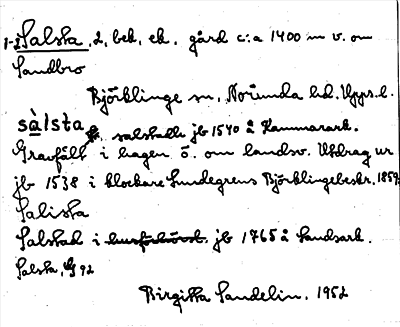 1-2 Salsta, 2, bek, ek. gård c:a 1400 m v. om
Sandbro
Björklinge sn, Norunda hd, Upps. l.
sàlsta
salstadh jb 1540 å Kammarark.
Gravfält i hagen ö. om landsv. Utdrag ur
jb 1538 i klockare Lundegrens Björklingebeskr. 1859.
Salista
Salstad i husförhörsl. jb 1765 å Landsark.
Salsta, G 92
Birgitta Sandelin. 1952